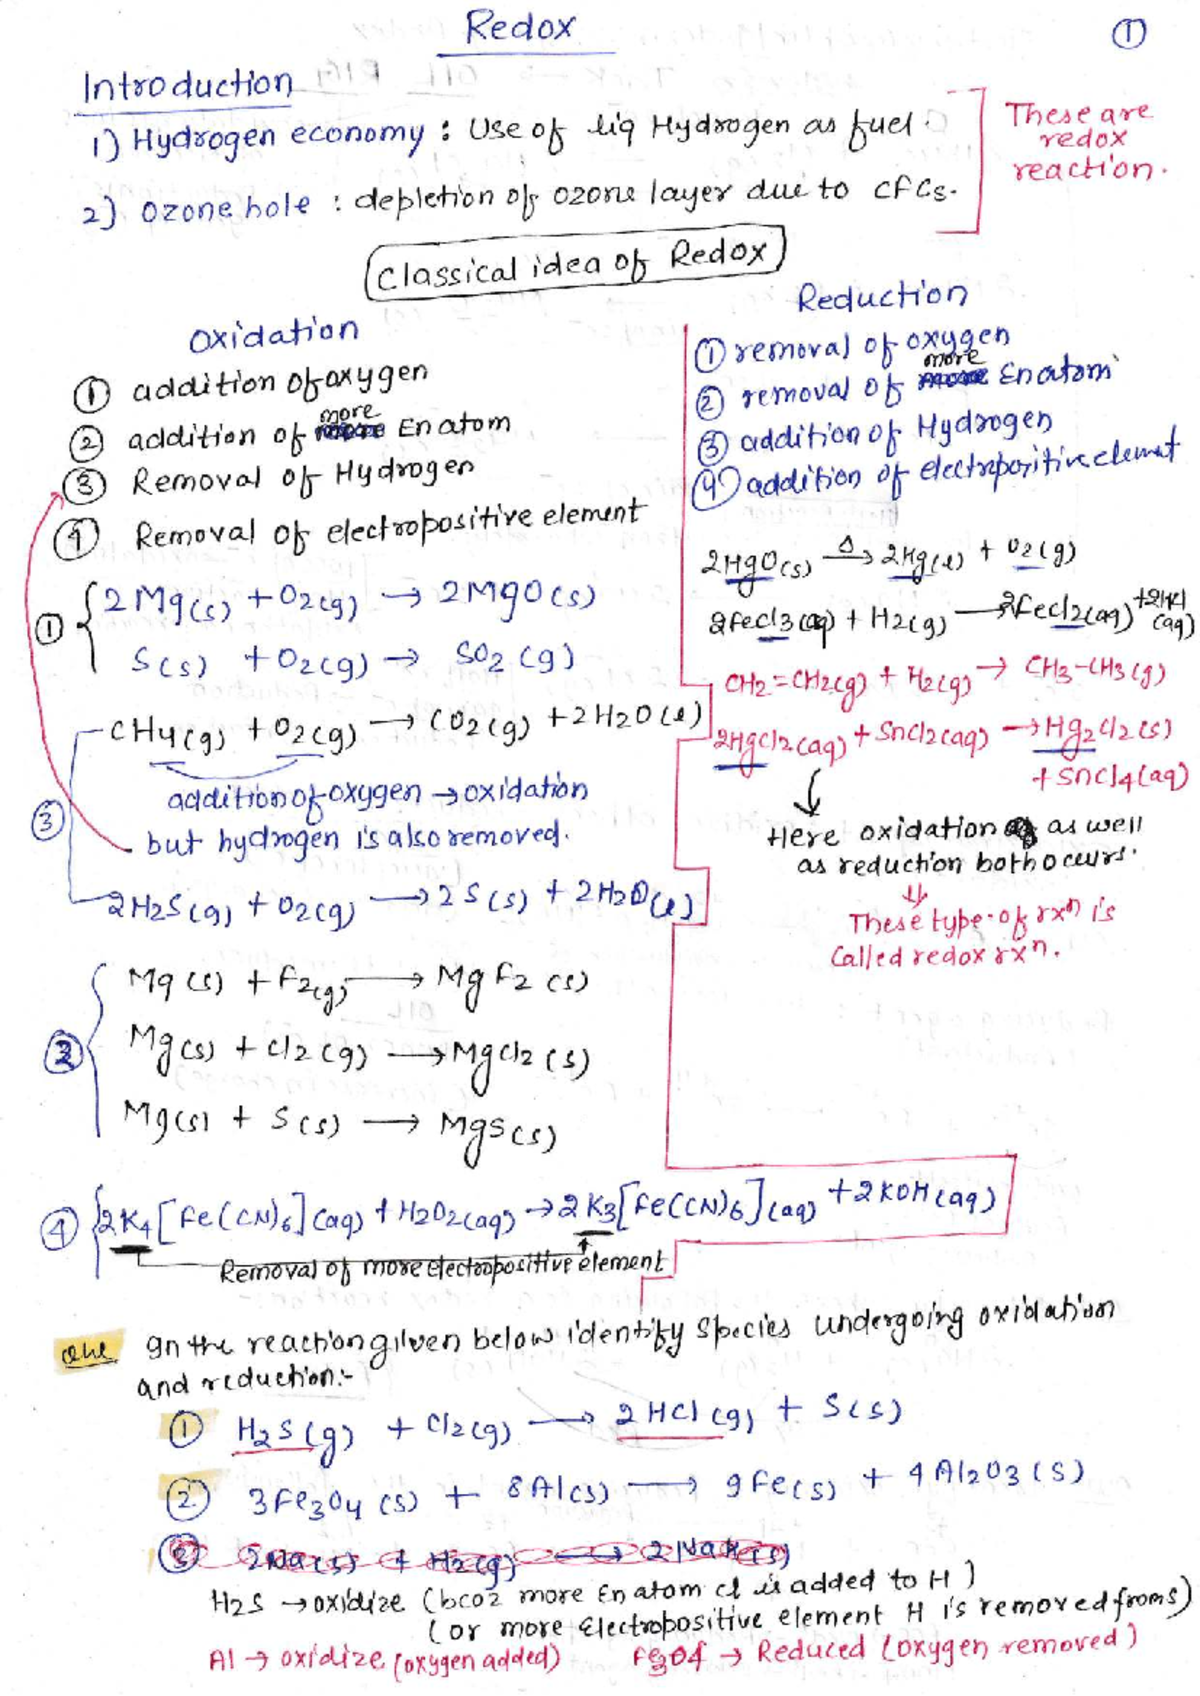 Redox
1
Introduction
1) Hydrogen economy : Use of liq Hydrogen as fuel.
2) Ozone hole : depletion of ozone layer due to CFCs.
These are
redox
reaction.
Classical idea of Redox
Oxidation
1 addition of oxygen
2 addition of more En atom
3 Removal of Hydrogen
4 Removal of electropositive element
1 2Mg(s) + O2(g) → 2MgO(s)
S(s) + O2(g) → SO2(g)
3 CH4(g) + O2(g) → CO2(g) + 2H2O(l)
addition of oxygen → oxidation
but hydrogen is also removed.
2H2S(g) + O2(g) → 2S(s) + 2H2O(l)
2 Mg(s) + F2(g) → MgF2(s)
Mg(s) + Cl2(g) → MgCl2(s)
Mg(s) + S(s) → MgS(s)
4 2K4[Fe(CN)6](aq) + H2O2(aq) → 2K3[Fe(CN)6](aq) + 2KOH(aq)
Removal of more electropositive element
Reduction
1 removal of oxygen
2 removal of more En atom
3 addition of Hydrogen
4 addition of electropositive elemat
2HgO(s) Δ→ 2Hg(l) + O2(g)
2FeCl3(aq) + H2(g) → 2FeCl2(aq) + 2HCl(aq)
CH2=CH2(g) + H2(g) → CH3-CH3(g)
2HgCl2(aq) + SnCl2(aq) → Hg2Cl2(s)
+ SnCl4(aq)
Here oxidation as well
as reduction both occurs.
These type of rxn is
Called redox rxn.
Que In the reaction given below identify species undergoing oxidation
and reduction:-
1 H2S(g) + Cl2(g) → 2HCl(g) + S(s)
2 3Fe3O4(s) + 8Al(s) → 9Fe(s) + 4Al2O3(s)
3 2Na(s) + H2(g) → 2NaH(s)
H2S → oxidize (bcoz more En atom Cl is added to H)
(or more Electropositive element H is removed from S)
Al → oxidize (oxygen added) Fe3O4 → Reduced (oxygen removed)